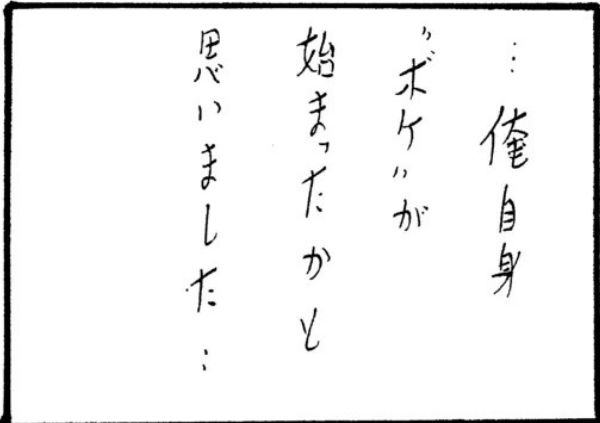 …俺自身
"ボケ"が
始まったかと
思いました…